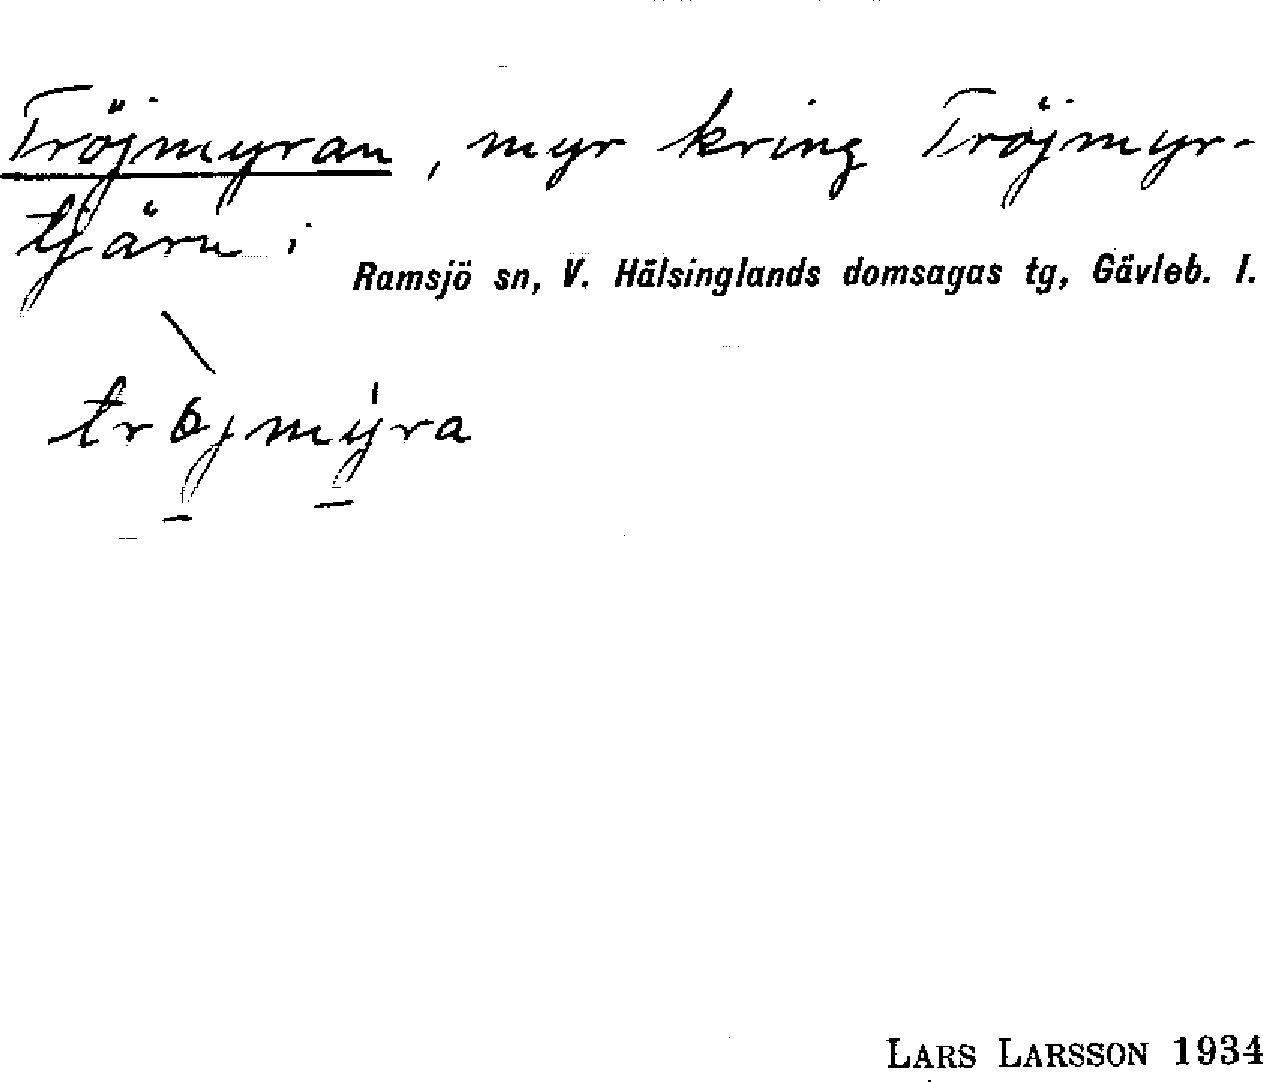 Tröjmyran, myr kring Tröjmyr-
tjärn i
Ramsjö sn, V. Hälsinglands domsagas tg, Gävleb. l.
tròjmýra
LARS LARSSON 1934